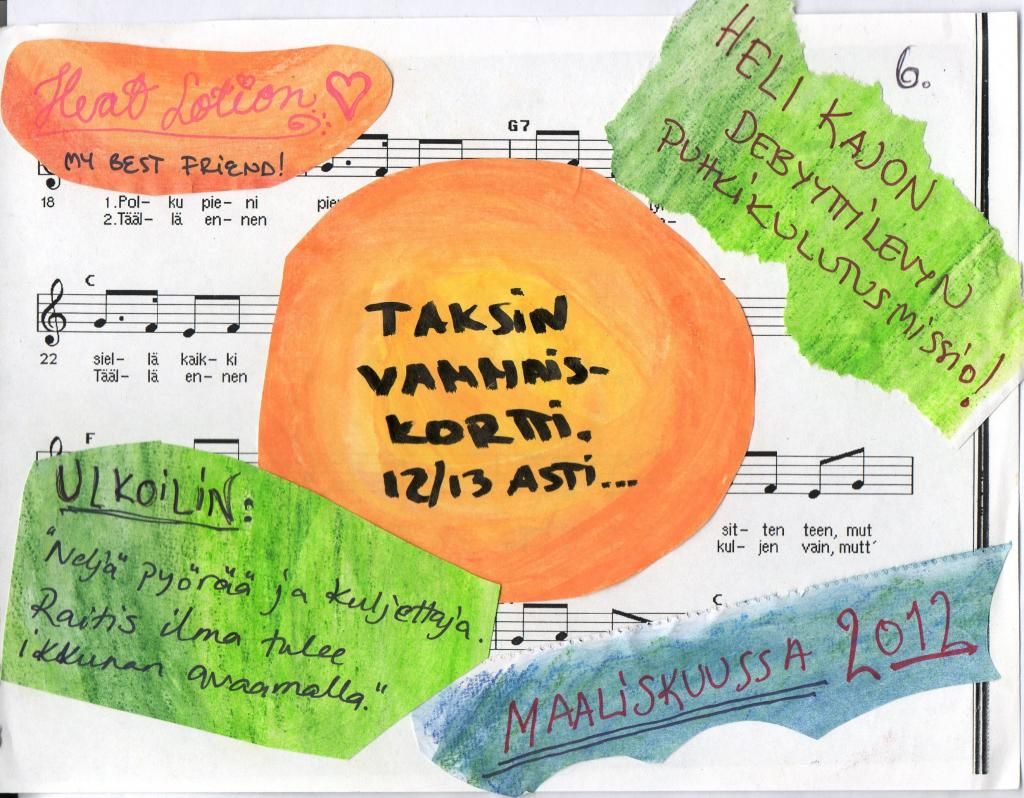 Heat Lotion
MY BEST FRIEND!
HELI KAJON
DEBYYTTILEVYN
PUHKIKULUTUSMISSIO!
6.
G7
18 1.Pol- ku pie- ni pie
2.Tääl- lä en- nen
C
22 siel- lä kaik- ki
Tääl- lä en- nen
TAKSIN
VAMMAIS-
KORTTI.
12/13 ASTI...
F
sit- ten teen, mut
kul- jen vain, mutt´
ULKOILIN:
"Neljä" pyörää ja kuljettaja.
Raitis ilma tulee
ikkunan avaamalla."
C
MAALISKUUSSA 2012